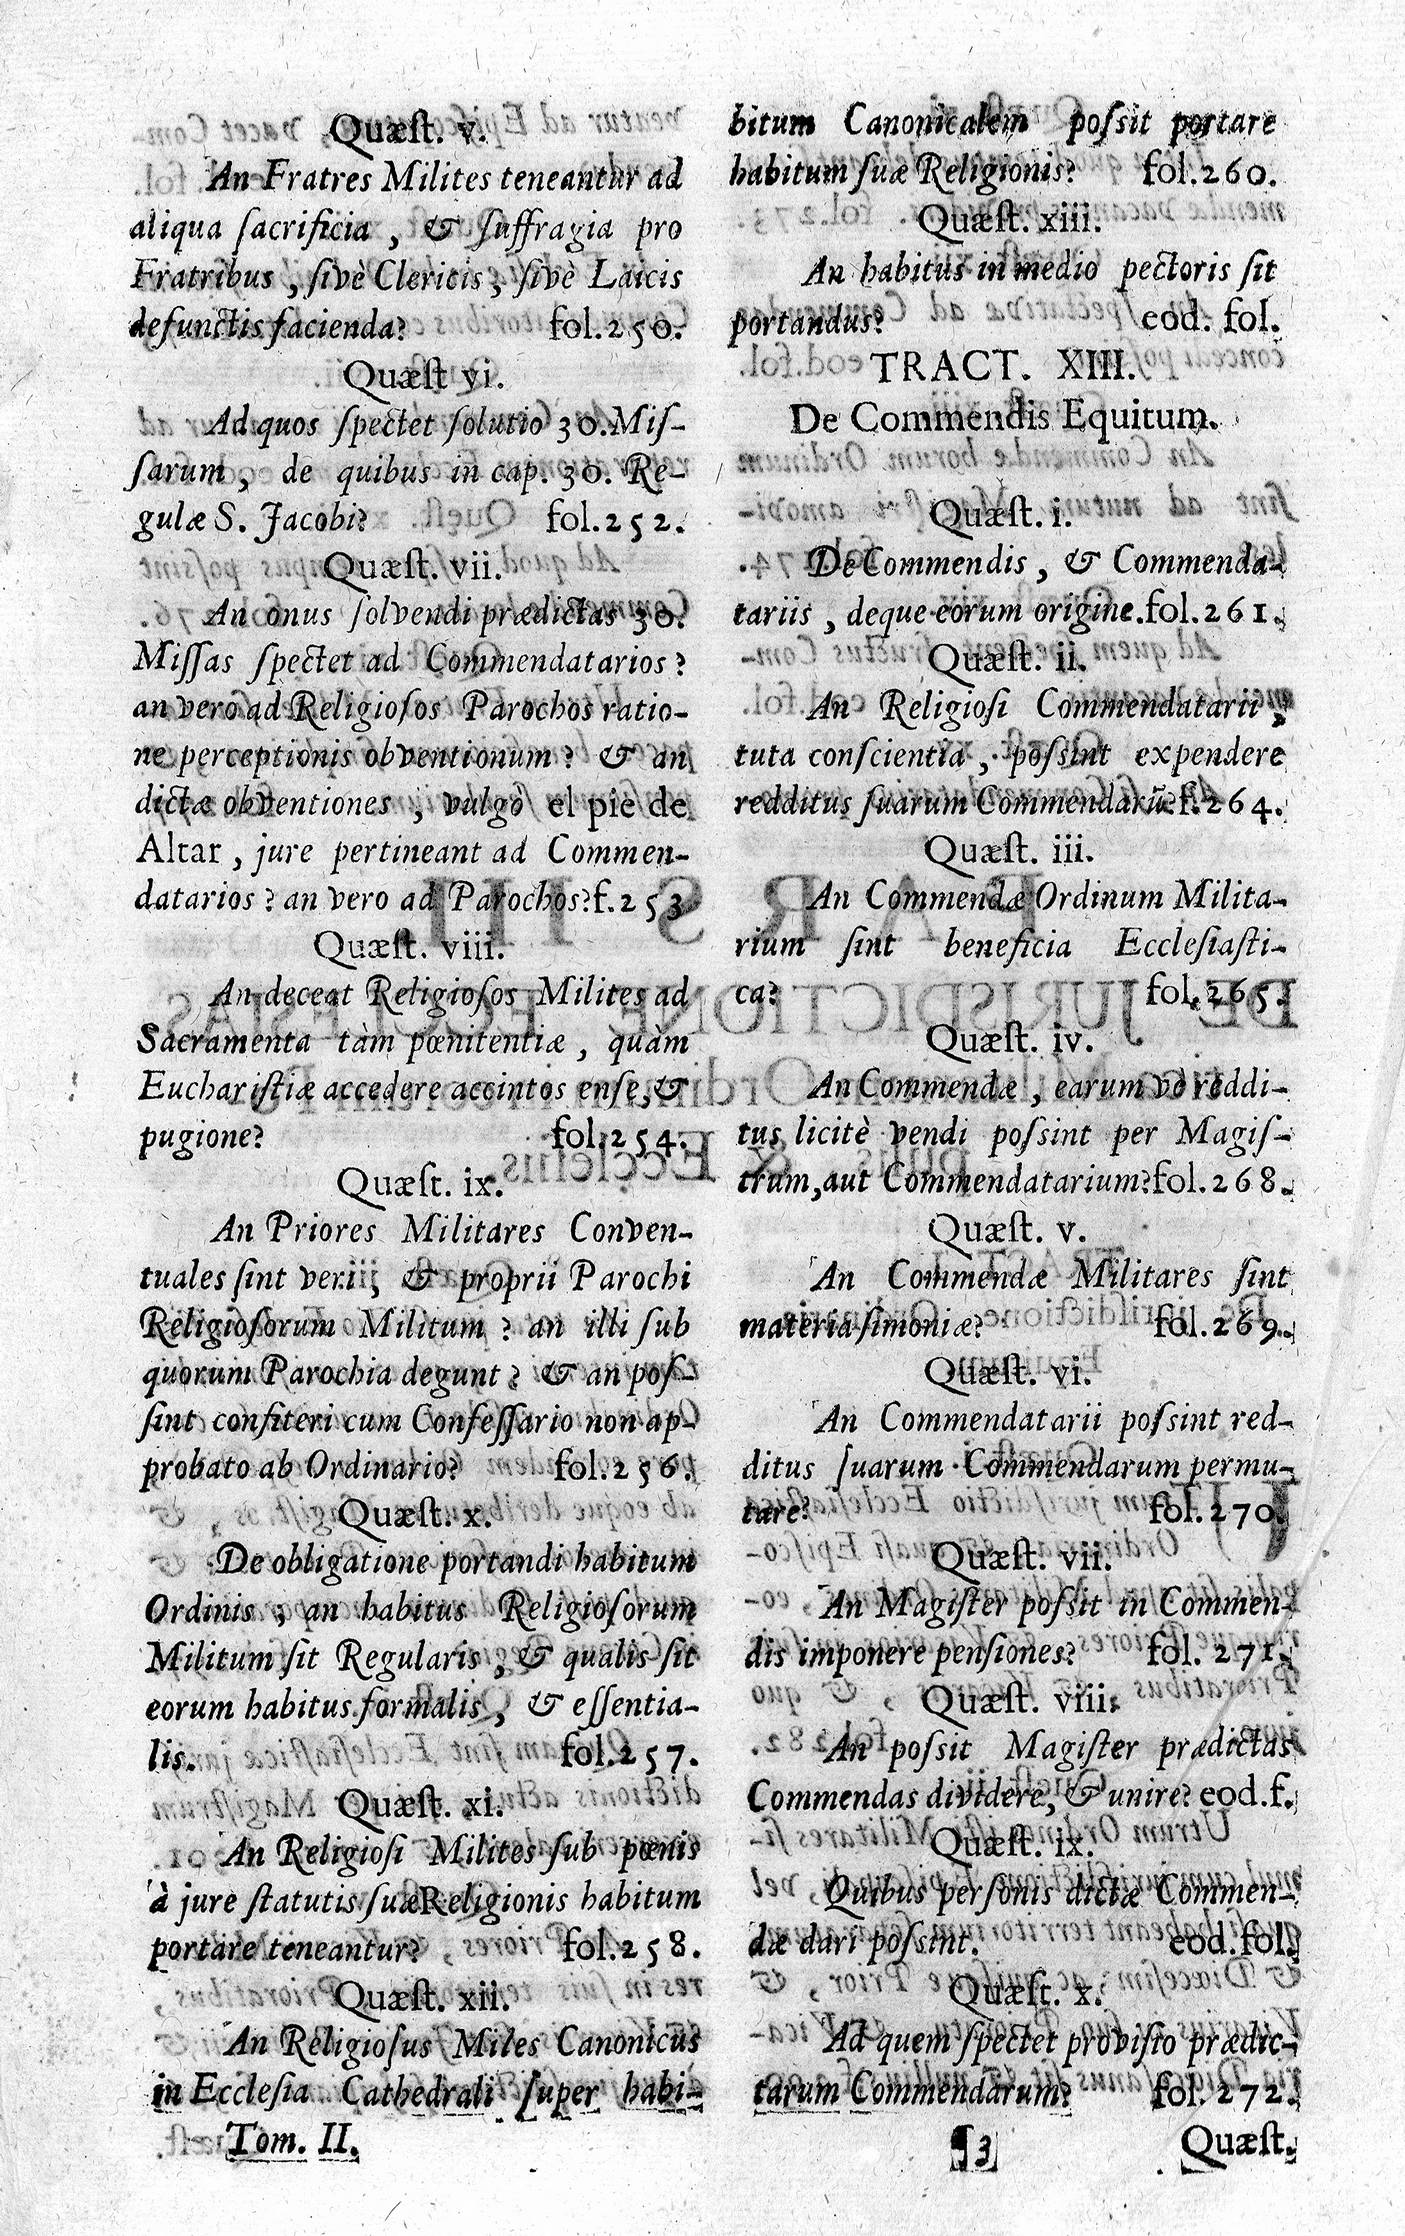 Quæſt. v.
An Fratres Milites teneantur ad
aliqua ſacrificia, & ſuffragia pro
Fratribus, ſivè Clericis, ſivè Laicis
defunctis facienda? fol.250.
Quæſt vi.
Ad quos ſpectet ſolutio 30. Miſ-
ſarum, de quibus in cap. 30. Re-
gulæ S. Jacobi? fol.252.
Quæſt. vii.
An onus ſolvendi prædictas 30.
Miſſas ſpectet ad Commendatarios?
an vero ad Religioſos Parochos ratio-
ne perceptionis obventionum? & an
dictæ obventiones, vulgo el pie de
Altar, jure pertineant ad Commen-
datarios? an vero ad Parochos? f.253
Quæſt. viii.
An deceat Religioſos Milites ad
Sacramenta tàm pœnitentiæ, quàm
Euchariſtiæ accedere accintos enſe, &
pugione? fol.254.
Quæſt. ix.
An Priores Militares Conven-
tuales ſint veri, & proprii Parochi
Religioſorum Militum? an illi ſub
quorum Parochia degunt? & an poſ-
ſint confiteri cum Confeſſario non ap-
probato ab Ordinario? fol.256.
Quæſt. x.
De obligatione portandi habitum
Ordinis; an habitus Religioſorum
Militum ſit Regularis, & qualis ſit
eorum habitus formalis, & eſſentia-
lis. fol.257.
Quæſt. xi.
An Religioſi Milites ſub pœnis
à jure ſtatutis ſuæ Religionis habitum
portare teneantur? fol.258.
Quæſt. xii.
An Religioſus Miles Canonicus
in Eccleſia Cathedrali ſuper habi-
Tom. II.
bitum Canonicalem poſsit portare
habitum ſuæ Religionis? fol.260.
Quæſt. xiii.
An habitus in medio pectoris ſit
portandus? eod. fol.
TRACT. XIII.
De Commendis Equitum.
Quæſt. i.
De Commendis, & Commenda-
tariis, deque eorum origine. fol.261.
Quæſt. ii.
An Religioſi Commendatarii,
tuta conſcientia, poſsint expendere
redditus ſuarum Commendarū? f.264.
Quæſt. iii.
An Commendæ Ordinum Milita-
rium ſint beneficia Eccleſiaſti-
ca? fol.265.
Quæſt. iv.
An Commendæ, earum vè reddi-
tus licitè vendi poſsint per Magiſ-
trum, aut Commendatarium? fol.268.
Quæſt. v.
An Commendæ Militares ſint
materia ſimoniæ? fol.269.
Quæſt. vi.
An Commendatarii poſsint red-
ditus ſuarum Commendarum permu-
tare? fol.270.
Quæſt. vii.
An Magiſter poſsit in Commen-
dis imponere penſiones? fol. 271.
Quæſt. viii.
An poſsit Magiſter prædictas
Commendas dividere, & unire? eod.f.
Quæſt. ix.
Quibus perſonis dictæ Commen-
dæ dari poſsint. eod.fol.
Quæſt. x.
Ad quem ſpectet proviſio prædic-
tarum Commendarum? fol. 272.
¶3 Quæſt.